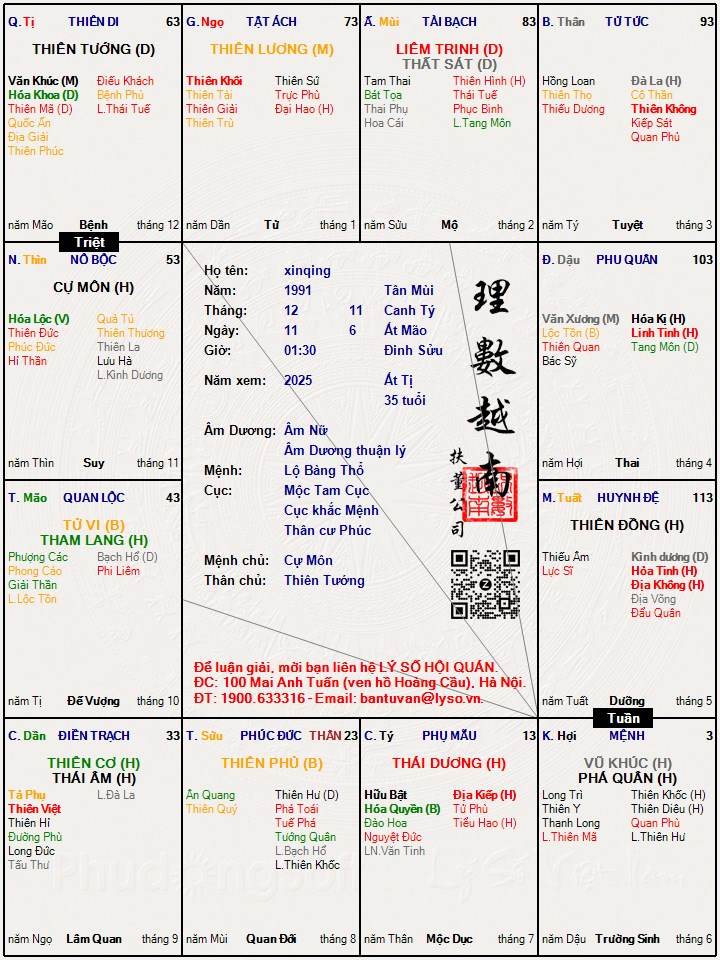 Q. Tị THIÊN DI 63
THIÊN TƯỚNG (D)
Văn Khúc (M) Điếu Khách
Hóa Khoa (D) Bệnh Phù
Thiên Mã (D) L.Thái Tuế
Quốc Ấn
Địa Giải
Thiên Phúc
năm Mão Bệnh tháng 12
G. Ngọ TẬT ÁCH 73
THIÊN LƯƠNG (M)
Thiên Khôi Thiên Sứ
Thiên Tài Trực Phù
Thiên Giải Đại Hao (H)
Thiên Trù
năm Dần Tử tháng 1
Ấ. Mùi TÀI BẠCH 83
LIÊM TRINH (D)
THẤT SÁT (D)
Tam Thai Thiên Hình (H)
Bát Tọa Thái Tuế
Thai Phụ Phục Binh
Hoa Cái L.Tang Môn
năm Sửu Mộ tháng 2
B. Thân TỬ TỨC 93
Hồng Loan Đà La (H)
Thiên Thọ Cô Thần
Thiếu Dương Thiên Không
Kiếp Sát
Quan Phủ
năm Tý Tuyệt tháng 3
Triệt
N. Thìn NÔ BỘC 53
CỰ MÔN (H)
Hóa Lộc (V) Quả Tú
Thiên Đức Thiên Thương
Phúc Đức Thiên La
Hỉ Thần Lưu Hà
L.Kình Dương
năm Thìn Suy tháng 11
Họ tên: xinqing
Năm: 1991 Tân Mùi
Tháng: 12 11 Canh Tý
Ngày: 11 6 Ất Mão
Giờ: 01:30 Đinh Sửu
Năm xem: 2025 Ất Tị
35 tuổi
Âm Dương: Âm Nữ
Âm Dương thuận lý
Mệnh: Lộ Bàng Thổ
Cục: Mộc Tam Cục
Cục khắc Mệnh
Thân cư Phúc
Mệnh chủ: Cự Môn
Thân chủ: Thiên Tướng
理數越南
扶董公司
Để luận giải, mời bạn liên hệ LÝ SỐ HỘI QUÁN.
ĐC: 100 Mai Anh Tuấn (ven hồ Hoàng Cầu), Hà Nội.
ĐT: 1900.633316 - Email: bantuvan@lyso.vn.
Đ. Dậu PHU QUÂN 103
Văn Xương (M) Hóa Kị (H)
Lộc Tồn (B) Linh Tinh (H)
Thiên Quan Tang Môn (D)
Bác Sỹ
năm Hợi Thai tháng 4
T. Mão QUAN LỘC 43
TỬ VI (B)
THAM LANG (H)
Phượng Các Bạch Hổ (D)
Phong Cáo Phi Liêm
Giải Thần
L.Lộc Tồn
năm Tị Đế Vượng tháng 10
M. Tuất HUYNH ĐỆ 113
THIÊN ĐỒNG (H)
Thiếu Âm Kình dương (D)
Lực Sĩ Hỏa Tinh (H)
Địa Không (H)
Địa Võng
Đẩu Quân
năm Tuất Dưỡng tháng 5
Tuần
C. Dần ĐIỀN TRẠCH 33
THIÊN CƠ (H)
THÁI ÂM (H)
Tả Phụ L.Đà La
Thiên Việt
Thiên Hỉ
Đường Phù
Long Đức
Tấu Thư
năm Ngọ Lâm Quan tháng 9
T. Sửu PHÚC ĐỨC THÂN 23
THIÊN PHỦ (B)
Ân Quang Thiên Hư (D)
Thiên Quý Phá Toái
Tuế Phá
Tướng Quân
L.Bạch Hổ
L.Thiên Khốc
năm Mùi Quan Đới tháng 8
C. Tý PHỤ MẪU 13
THÁI DƯƠNG (H)
Hữu Bật Địa Kiếp (H)
Hóa Quyền (B) Tử Phù
Đào Hoa Tiểu Hao (H)
Nguyệt Đức
LN.Văn Tinh
năm Thân Mộc Dục tháng 7
K. Hợi MỆNH 3
VŨ KHÚC (H)
PHÁ QUÂN (H)
Long Trì Thiên Khốc (H)
Thiên Y Thiên Diêu (H)
Thanh Long Quan Phù
L.Thiên Mã L.Thiên Hư
năm Dậu Trường Sinh tháng 6